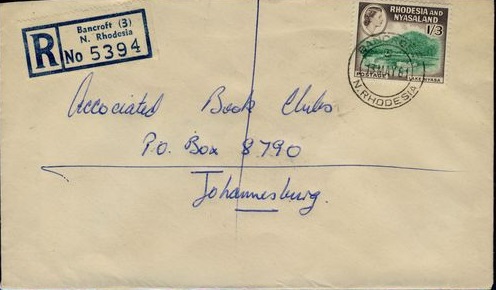 Bancroft (3)
N. Rhodesia
R No 5394
RHODESIA AND
NYASALAND
1/3
POSTAGE
LAKE NYASA
N. RHODESIA
Associated Book Clubs
P.O. Box 8790
Johannesburg.